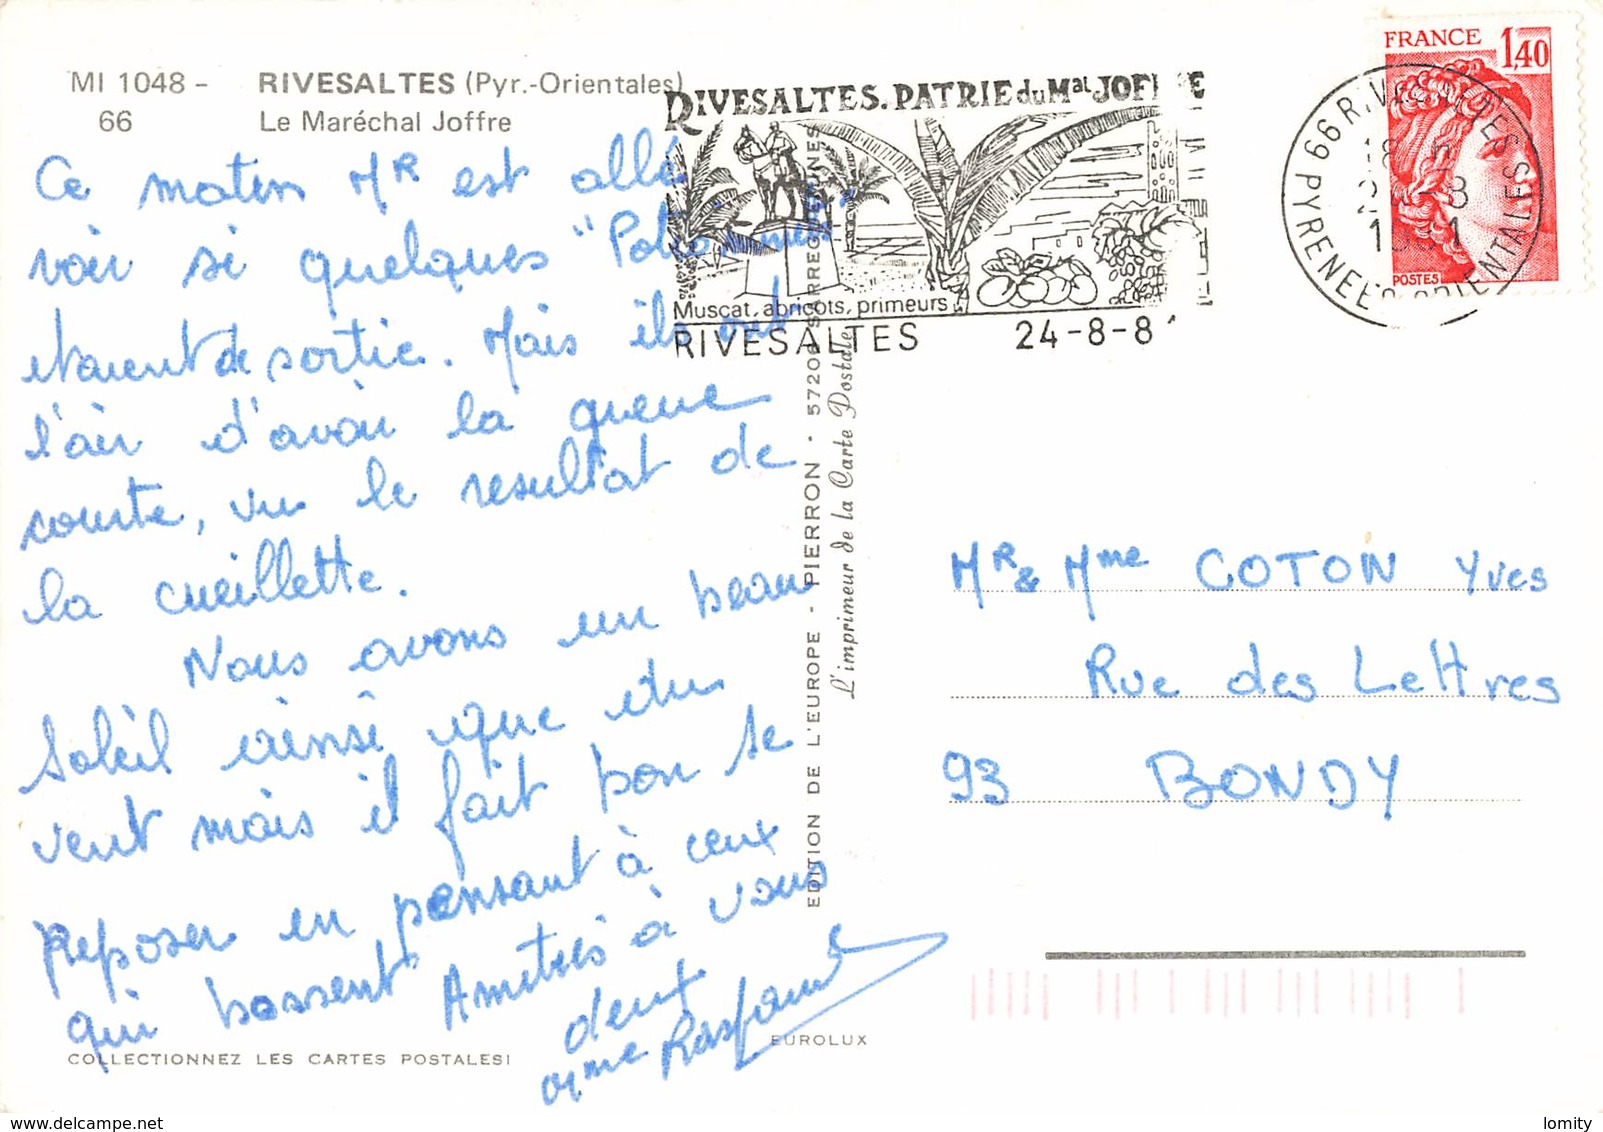 MI 1048 - RIVESALTES (Pyr.-Orientales)
66 Le Maréchal Joffre
RIVESALTES. PATRIE du Mal JOFFRE
Muscat, abricots, primeurs
RIVESALTES 24-8-8
FRANCE 1,40
POSTES
66 RIVESALTES
PYRENEES ORIENTALES
Ce matin MR est allé
voir si quelques
etaient de sortie. Mais ils ont
l'air d'avoir la queue
courte, vu le resultat de
la cueillette.
Nous avons un beau
Soleil ainsi que du
vent mais il fait bon se
reposer en pensant à ceux
qui bossent Amitiés à vous
deux
Mme
MR & Mme COTON Yves
Rue des Lettres
93 BONDY
EDITION DE L'EUROPE - PIERRON - 57206 SARREGUEMINES
L'imprimeur de la Carte Postale
COLLECTIONNEZ LES CARTES POSTALES!
EUROLUX
delcampe.net
lomity